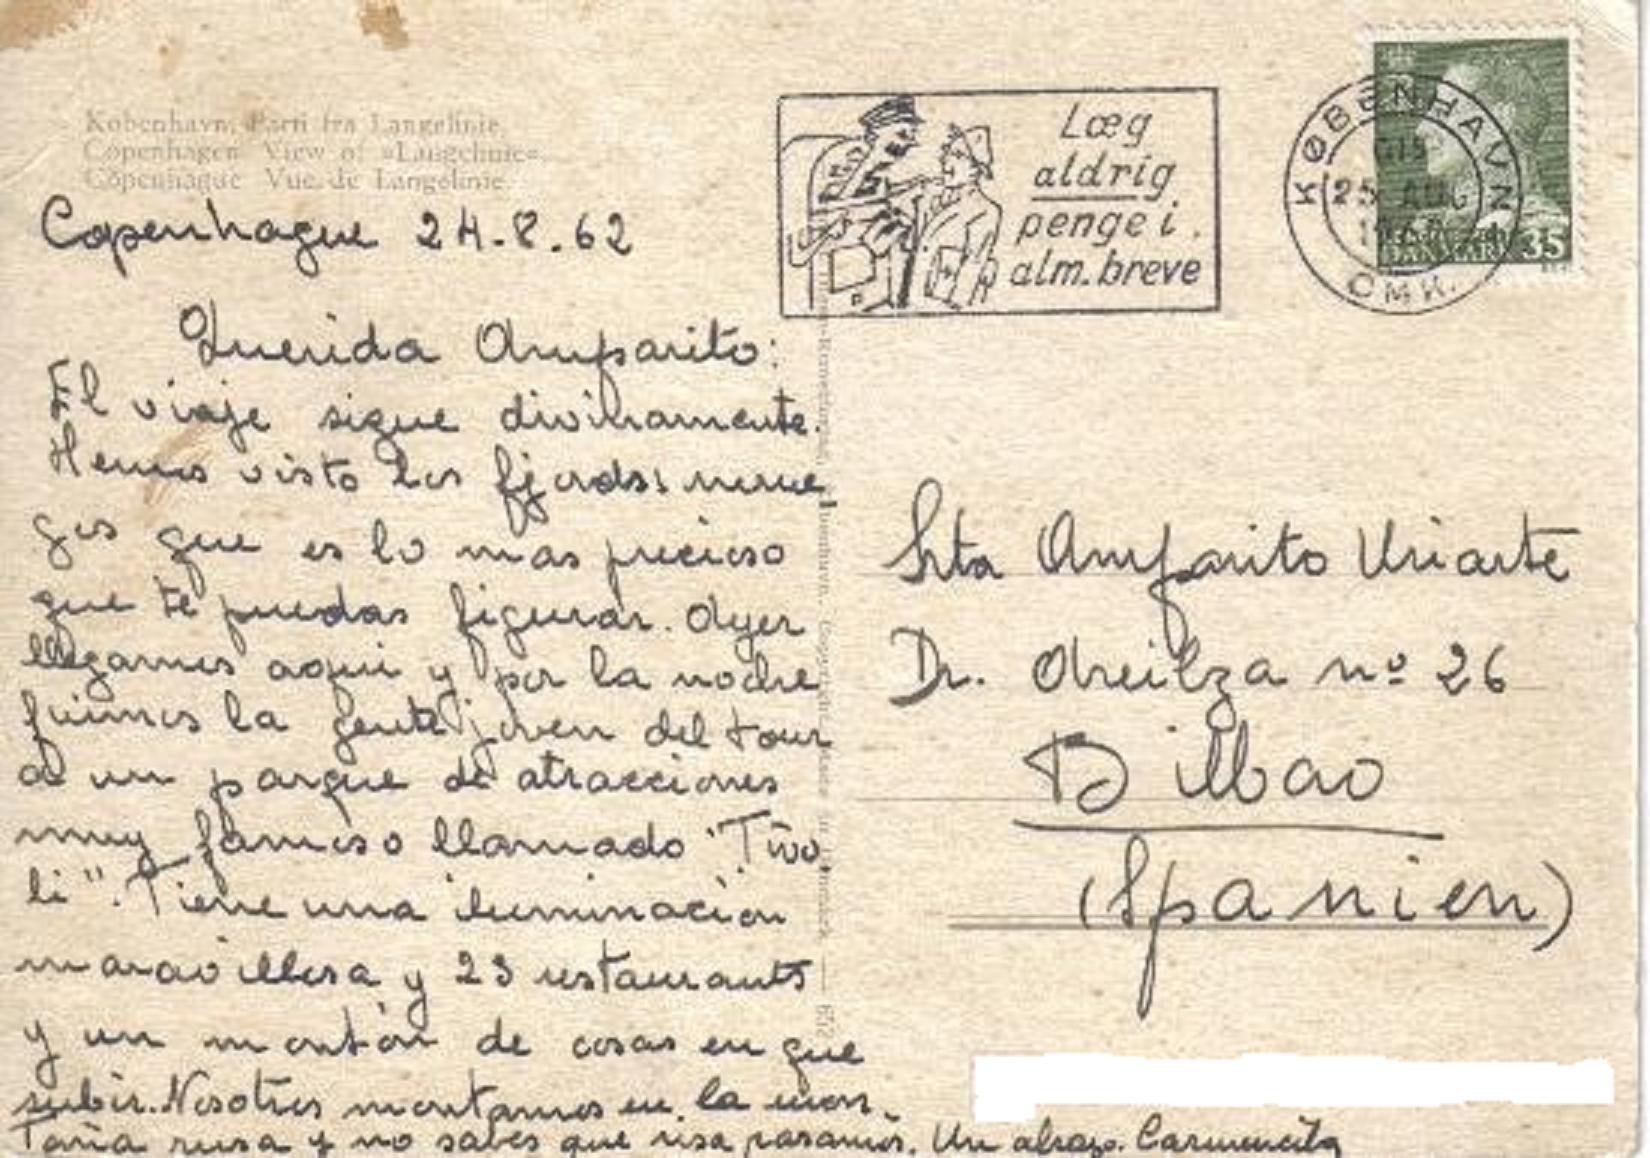 København. Parti fra Langelinie.
Copenhagen View of »Langelinie«.
Copenhague Vue de Langelinie.
Copenhague 24.8.62
Querida Amparito:
El viaje sigue divinamente.
Hemos visto los fjords norue-
gos que es lo mas precioso
que te puedas figurar. Ayer
llegamos aqui y por la noche
fuimos la gente joven del tour
a un parque de atracciones
muy famoso llamado "Tivo
li". Tiene una iluminación
maravillosa y 23 restaurants
y un montón de cosas en que
subir. Nosotros montamos en la mon-
taña rusa y no sabes que risa pasamos. Un abrazo. Carmencita
Læg
aldrig
penge i
alm. breve
KØBENHAVN
25 AUG
OMK.
DANMARK 35
Srta Amparito Uriarte
Dr. Areilza nº 26
Bilbao
(Spanien)